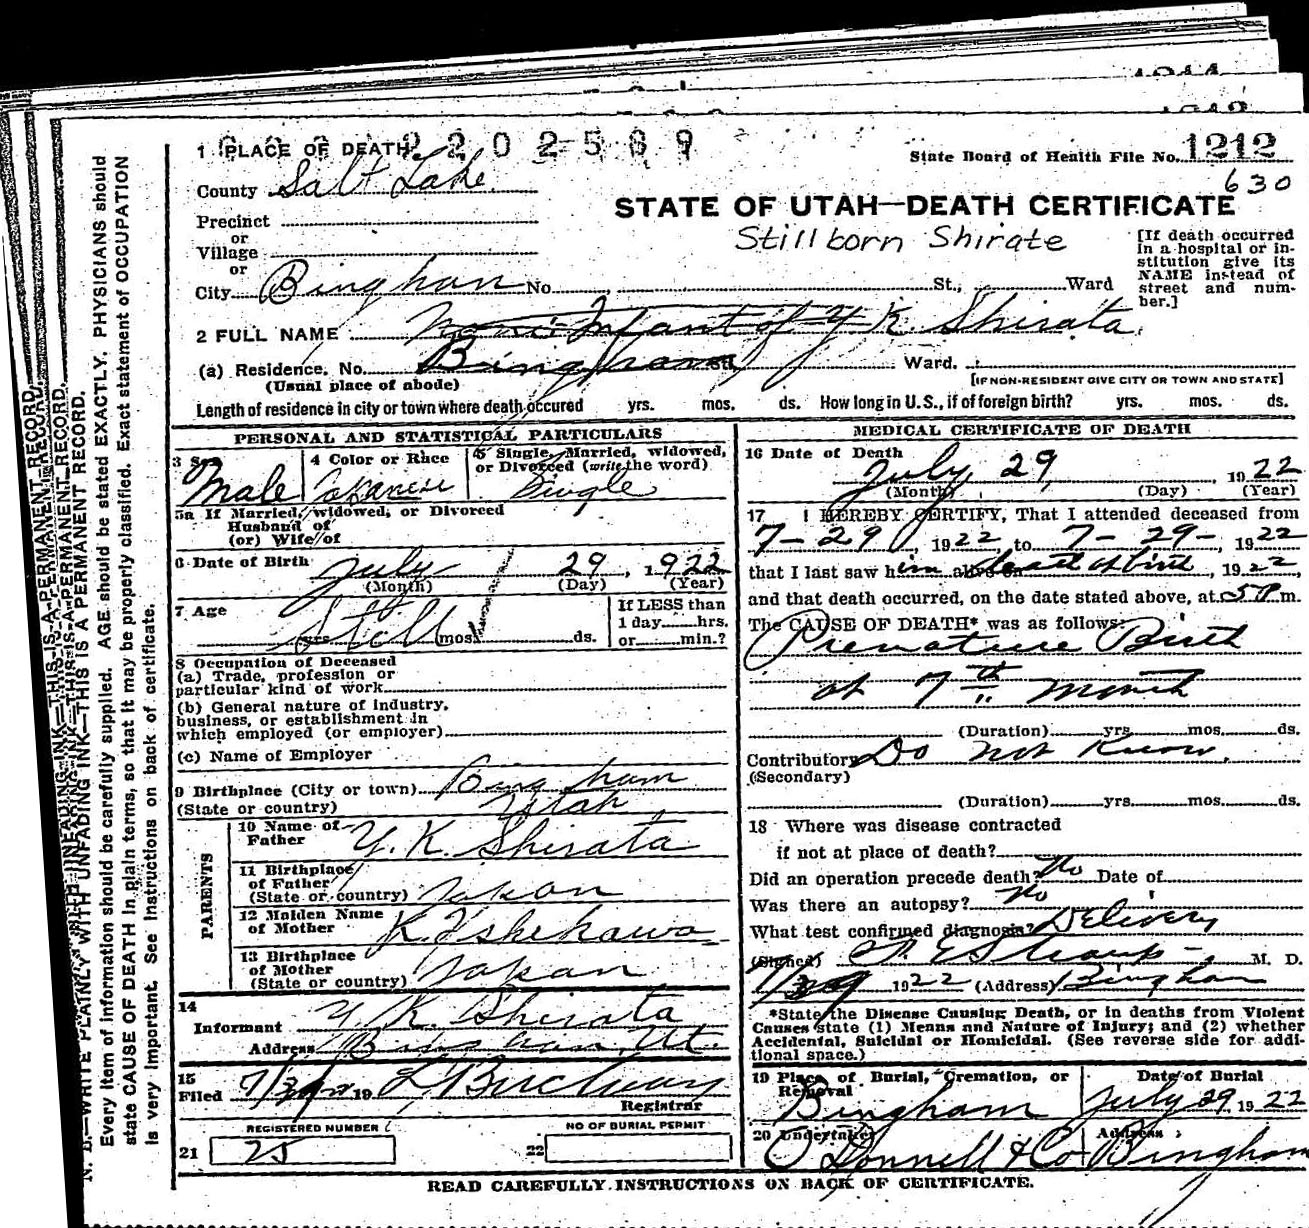 1 PLACE OF DEATH 2202589
State Board of Health File No. 1212
630
County Salt Lake
STATE OF UTAH—DEATH CERTIFICATE
Stillborn Shirate
Precinct
or
Village
or
City Bingham No. St., Ward
[If death occurred in a hospital or institution give its NAME instead of street and number.]
2 FULL NAME Infant of Y. K. Shirata
(a) Residence. No. Bingham St. Ward.
(Usual place of abode) [IF NON-RESIDENT GIVE CITY OR TOWN AND STATE]
Length of residence in city or town where death occured yrs. mos. ds. How long in U. S., if of foreign birth? yrs. mos. ds.
PERSONAL AND STATISTICAL PARTICULARS
3 Sex Male
4 Color or Race Japanese
5 Single, Married, widowed, or Divorced (write the word) Single
5a If Married, widowed, or Divorced
Husband of
(or) Wife of
6 Date of Birth July 29, 1922
(Month) (Day) (Year)
7 Age Still
yrs. mos. ds.
If LESS than
1 day hrs.
or min.?
8 Occupation of Deceased
(a) Trade, profession or
particular kind of work
(b) General nature of industry,
business, or establishment in
which employed (or employer)
(c) Name of Employer
9 Birthplace (City or town) Bingham
(State or country) Utah
PARENTS
10 Name of Father Y. K. Shirata
11 Birthplace
of Father
(State or country) Japan
12 Maiden Name
of Mother K. Ishikawa
13 Birthplace
of Mother
(State or country) Japan
14
Informant Y. K. Shirata
Address Bingham, Ut.
15
Filed 19
Registrar
REGISTERED NUMBER
21 25
NO OF BURIAL PERMIT
22
MEDICAL CERTIFICATE OF DEATH
16 Date of Death
July 29, 1922
(Month) (Day) (Year)
17 I HEREBY CERTIFY, That I attended deceased from
7-29, 1922 to 7-29-, 1922
that I last saw him alive on death at birth, 1922
and that death occurred, on the date stated above, at 5 P m.
The CAUSE OF DEATH* was as follows:
Premature Birth
at 7th month
(Duration) yrs. mos. ds.
Contributory Do not Know.
(Secondary)
(Duration) yrs. mos. ds.
18 Where was disease contracted
if not at place of death?
Did an operation precede death? No Date of
Was there an autopsy? No
What test confirmed diagnosis? Delivery
(Signed) M. D.
1922 (Address) Bingham
*State the Disease Causing Death, or in deaths from Violent
Causes state (1) Means and Nature of Injury; and (2) whether
Accidental, Suicidal or Homicidal. (See reverse side for addi-
tional space.)
19 Place of Burial, Cremation, or
Removal Bingham
Date of Burial
July 29 1922
20 Undertaker O'Donnell & Co
Address Bingham
READ CAREFULLY INSTRUCTIONS ON BACK OF CERTIFICATE.
N. B.—WRITE PLAINLY WITH UNFADING INK—THIS IS A PERMANENT RECORD.
Every item of information should be carefully supplied. AGE should be stated EXACTLY. PHYSICIANS should
state CAUSE OF DEATH in plain terms, so that it may be properly classified. Exact statement of OCCUPATION
is very important. See instructions on back of certificate.